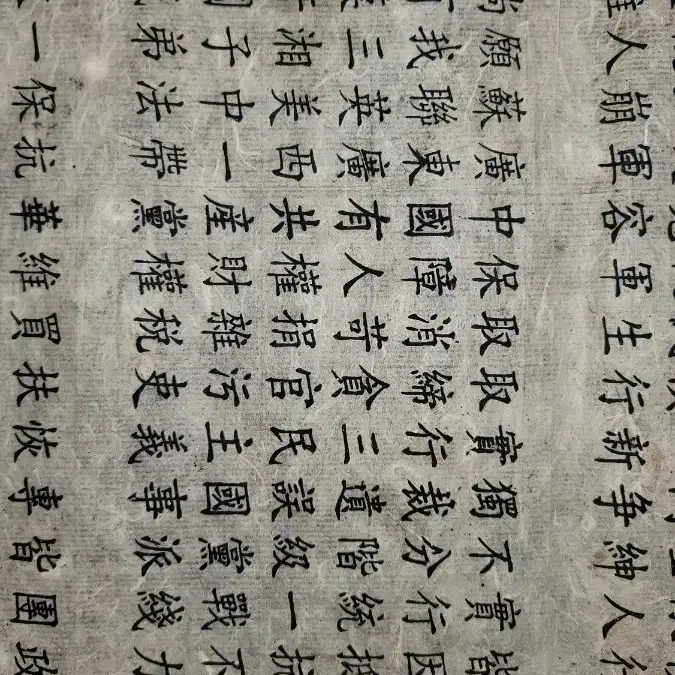 行 皆因抵抗不力 政
人 實行統一戰綫 團
紳 不分階級黨派 皆
争 獨裁遺誤國事 專
新 實行三民主義 恢
行 取締貪官污吏 扶
生 取消苛捐雜稅 買
軍 保障人權財權 維
容 中國有共產黨 華
軍 廣東廣西一帶 抗
崩 蘇聯英美中法 保
人 願我三湘子弟 一